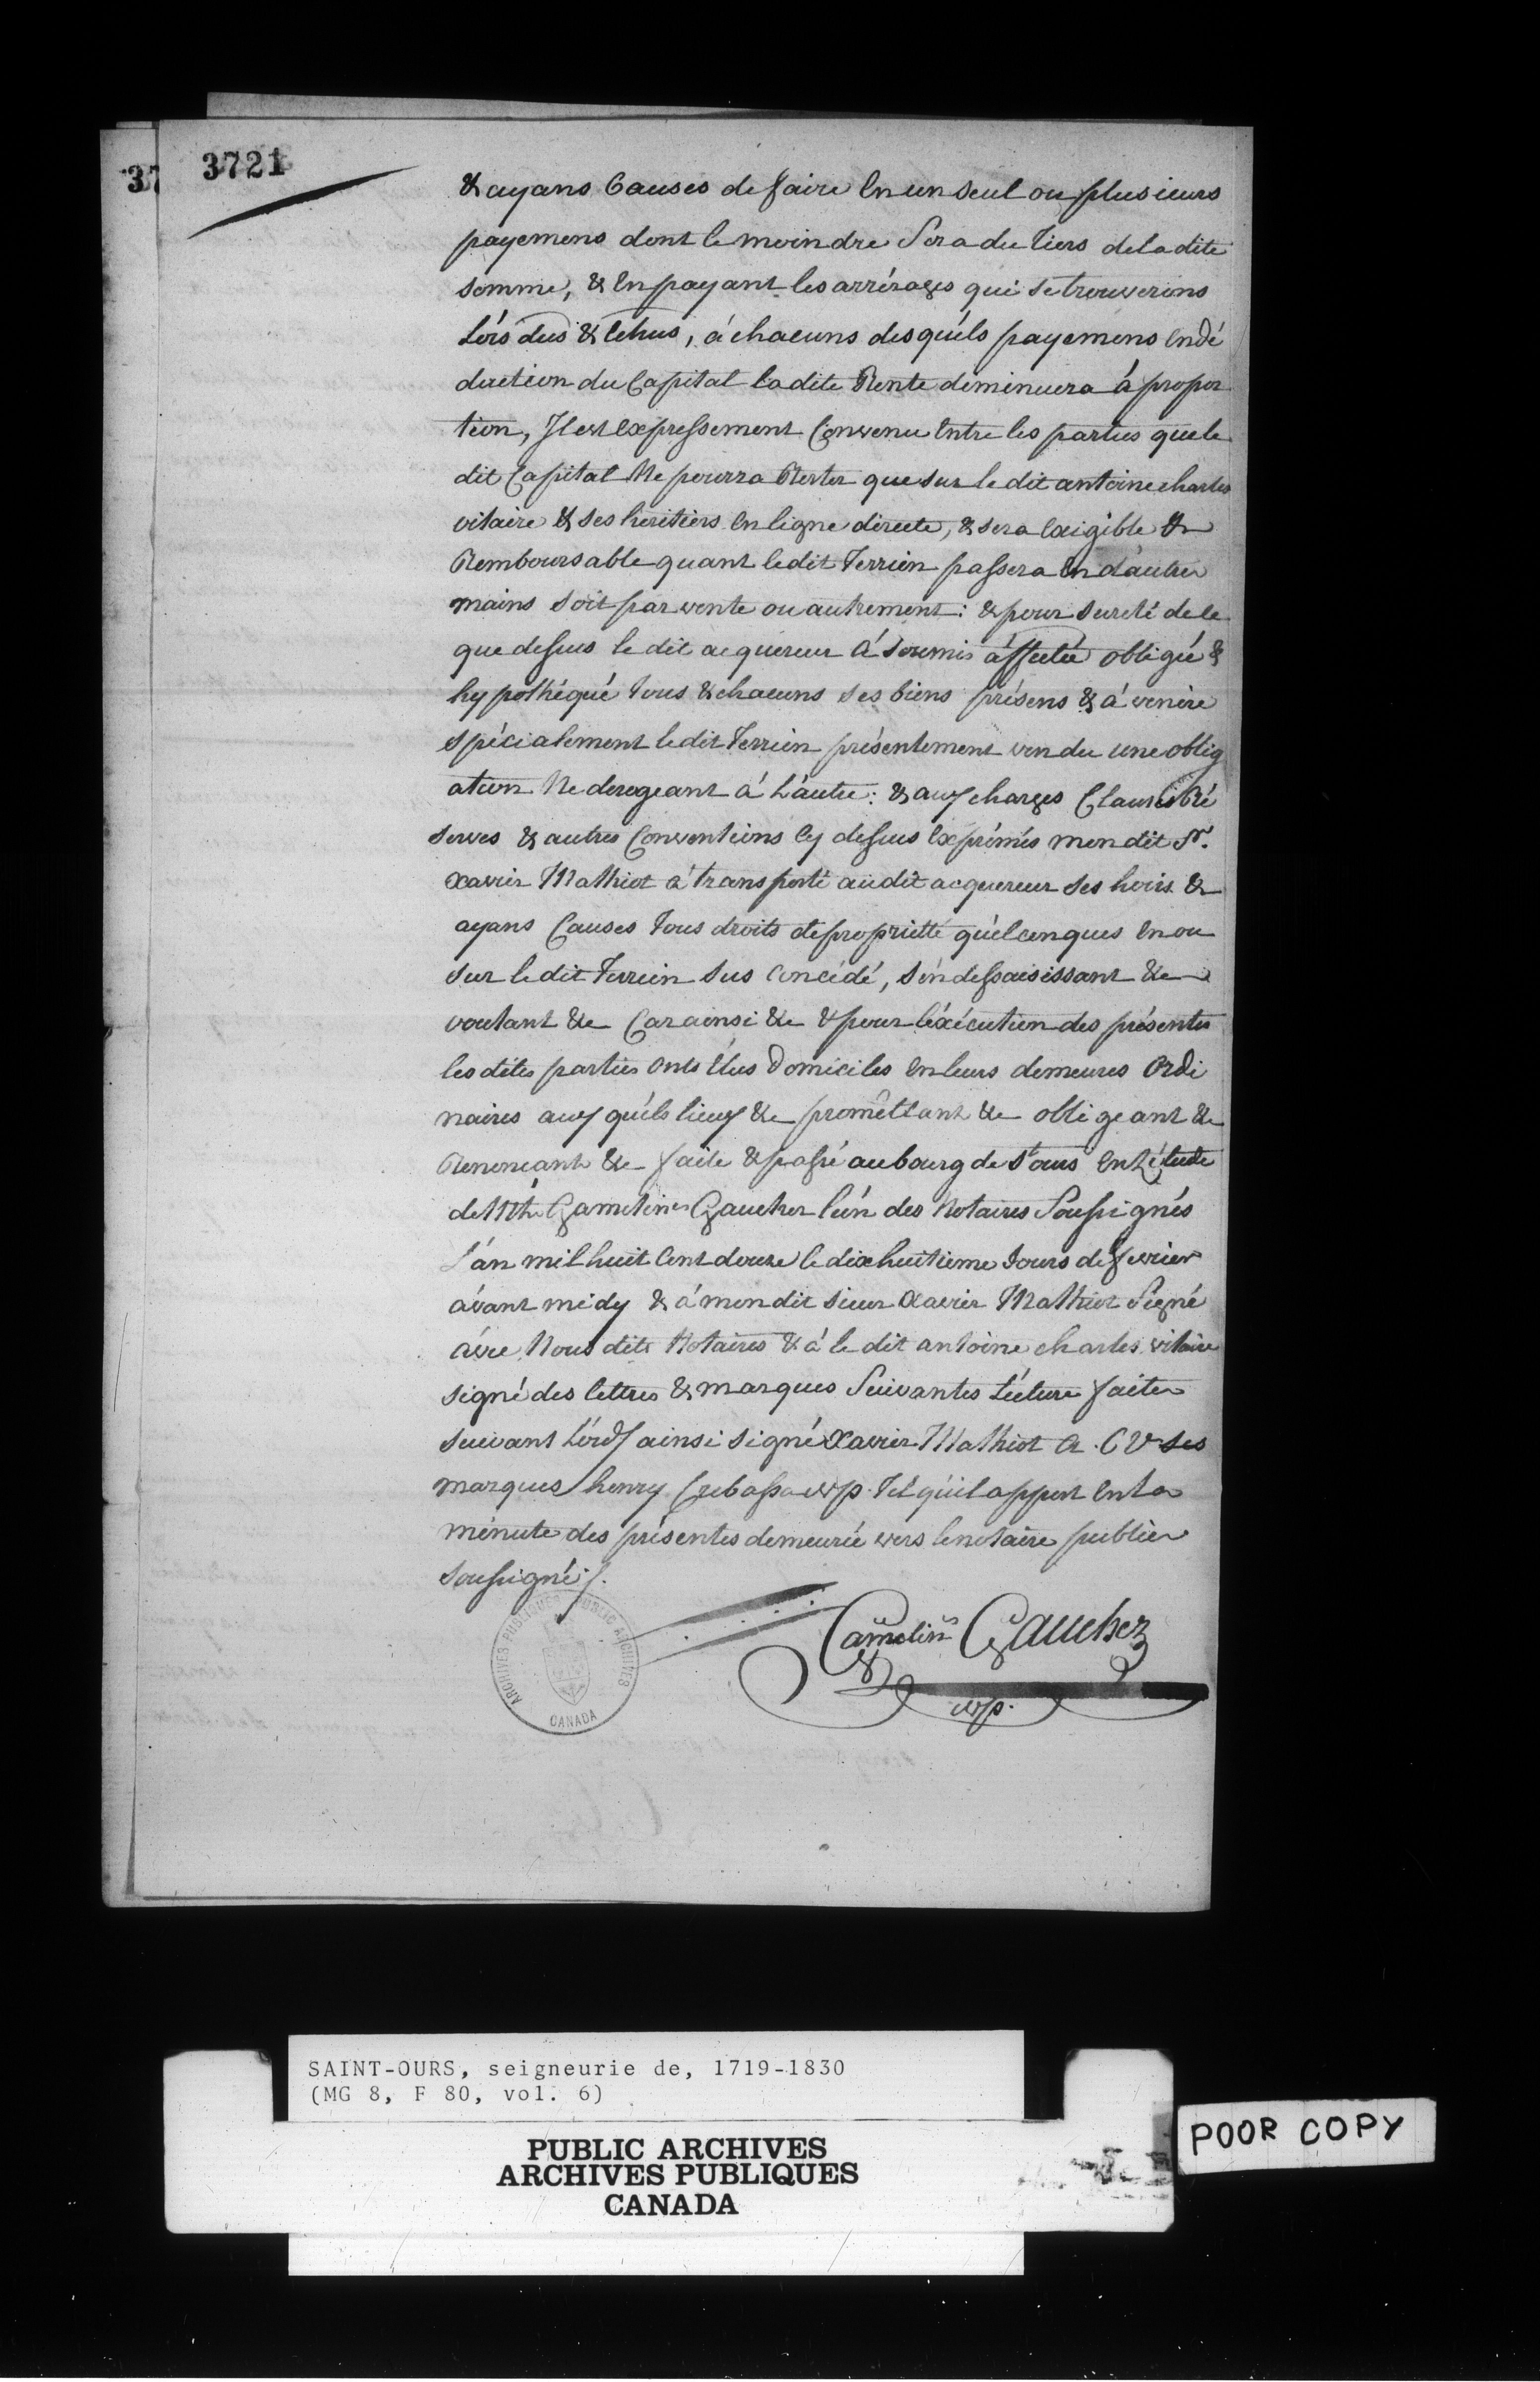 37
3721
& ayans Causes de faire En un seul ou plusieurs
payemens dont le moindre Sera du tiers de la dite
somme, & En payant les arrérages qui se trouverons
Lors dus & Echus, á chacuns desquéls payemens En dé
duction du Capital la dite Rente diminuera á propor
tion, Il est Expressement Convenu Entre les parties que le
dit Capital Ne pourra Rester que sur le dit antoine charles
vitaire & ses heritiers En ligne directe, & sera Exigible &
Remboursable quant le dit Terrein passera En d'autres
mains soit par vente ou autrement : & pour sureté de le
que dessus le dit acquereur á soumis áffectée obligée &
hypothéqué tous & chacuns ses biens présens & á venire
spécialement le dit Terrein présentement vendu une oblig
ation Ne derogeant á L'autre : & aux charges Clauses Ré
serves & autres Conventions Cy dessus Exprimés mon dit Sr.
xavier Mathiot á transporté au dit acquereur ses hoirs &
ayans Causes tous droits de propriétté quélconques En ou
sur le dit Terrein sus Concédé, s'én dessaisissant &c
voulant &c Car ainsi &c & pour l'éxécution des présentes
les dites parties Onts Elus Domiciles En leurs demeures Ordi
naires aux quéls lieux &c promêttant &c obligeant &c
Renonçant &c faite & passé au bourg de St ours En L'étude
de Mtre Gamelin Gaucher l'ún des Notaires Soussignés
L'án mil huit Cent douze le dix huitieme Jours de fevrier
ávant midy & á mon dit sieur Xavier Mathiot Signé
ávec Nous dits Notaires & á le dit antoine charles vitaire
signé des lettres & marques Suivantes Lécture faite
suivant L'órd/ ainsi signé Xavier Mathiot A. C V ses
marques henry Crebassa N/p. Tél qu'il appert En La
minute des présentes demeurée vers le notaire publice
soussigné /.
Gamelin Gaucher
N/p.
ARCHIVES PUBLIQUES PUBLIC ARCHIVES
CANADA
SAINT-OURS, seigneurie de, 1719-1830
(MG 8, F 80, vol. 6)
PUBLIC ARCHIVES
ARCHIVES PUBLIQUES
CANADA
POOR COPY